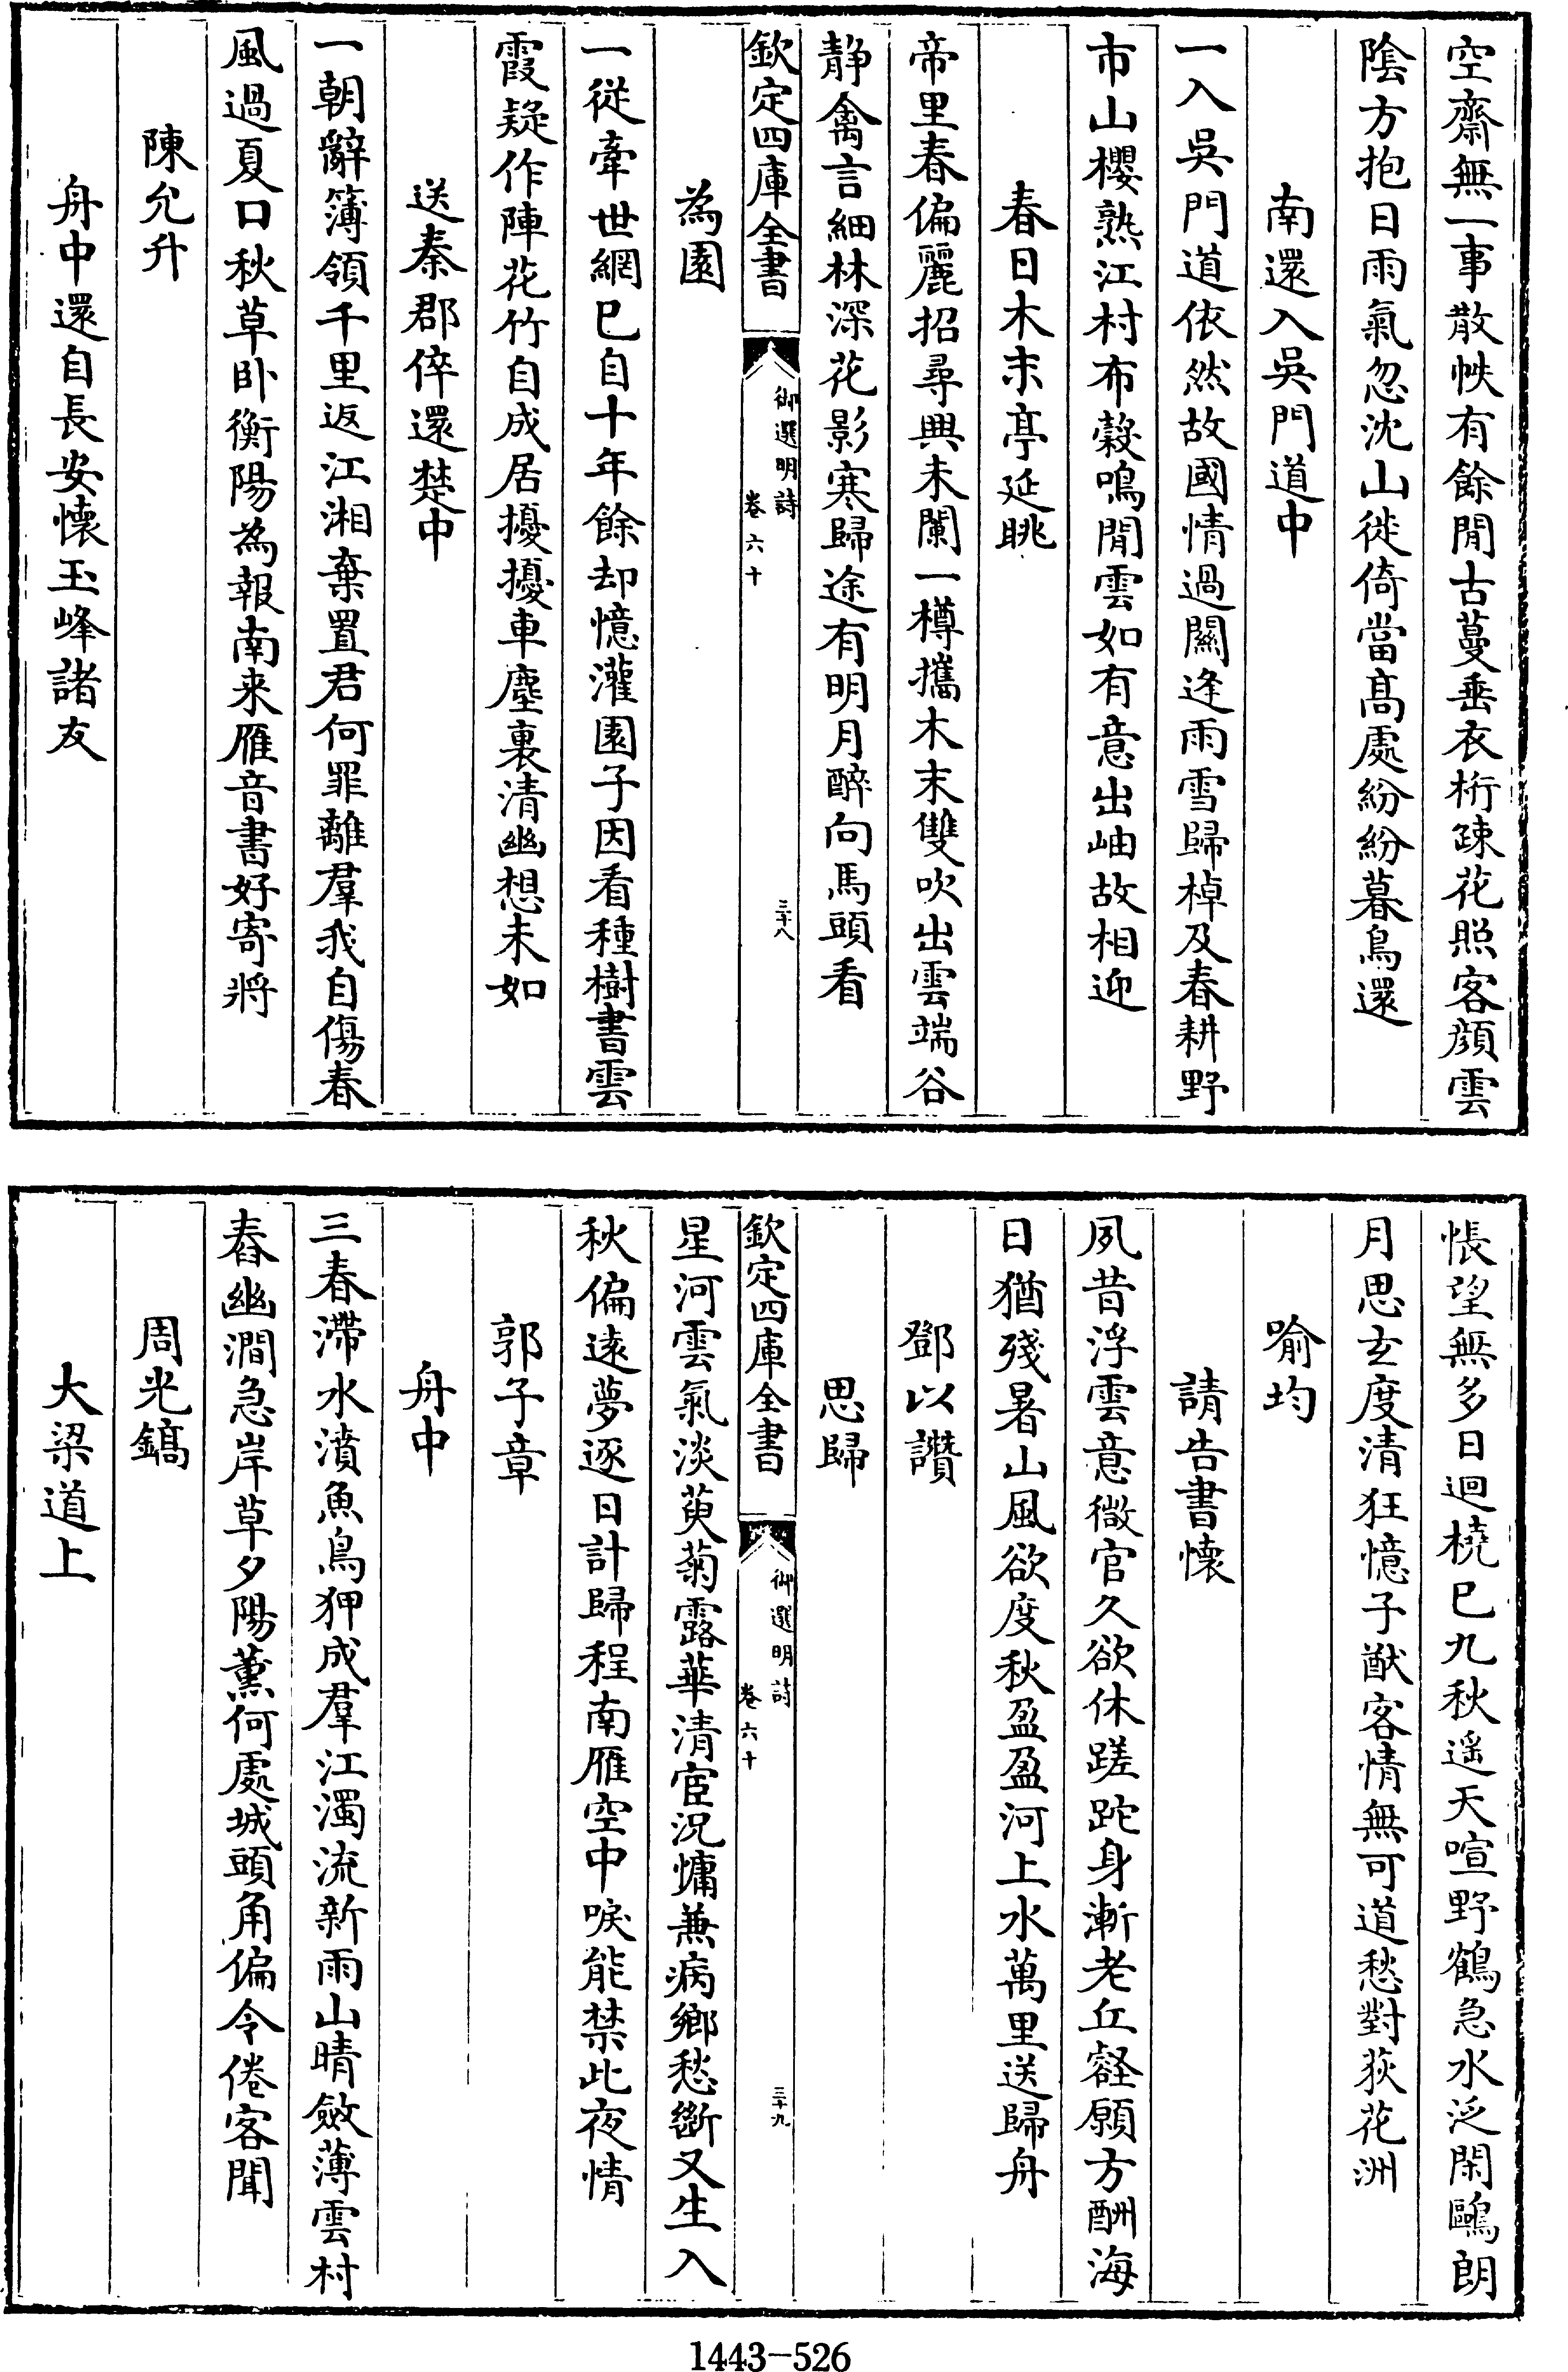 空齋無一事散帙有餘閒古蔓垂衣桁疎花照客顔雲
陰方抱日雨氣忽沈山徙倚當髙處紛紛暮鳥還
南還入吳門道中
一入吳門道依然故國情過關逢雨雪歸棹及春耕野
市山櫻熟江村布穀鳴閒雲如有意出岫故相迎
春日木末亭延眺
帝里春偏麗招尋興未闌一樽攜木末雙吹出雲端谷
静禽言細林深花影寒歸途有明月醉向馬頭看
欽定四庫全書
御選明詩
卷六十
三十八
為園
一從牽世網已自十年餘却憶灌園子因看種樹書雲
霞疑作陣花竹自成居擾擾車塵裏清幽想未如
送秦郡倅還楚中
一朝辭簿領千里返江湘棄置君何罪離羣我自傷春
風過夏口秋草卧衡陽為報南来雁音書好寄將
陳允升
舟中還自長安懷玉峰諸友
悵望無多日迴橈已九秋遥天喧野鶴急水泛閑鷗朗
月思玄度清狂憶子猷客情無可道愁對荻花洲
喻均
請告書懷
夙昔浮雲意微官久欲休蹉跎身漸老丘壑願方酬海
日猶殘暑山風欲度秋盈盈河上水萬里送歸舟
鄧以讚
思歸
欽定四庫全書
御選明詩
卷六十
三十九
星河雲氣淡萸菊露華清宦况慵兼病鄉愁斷又生入
秋偏遠夢逐日計歸程南雁空中唳能禁此夜情
郭子章
舟中
三春滯水濆魚鳥狎成羣江濁流新雨山晴斂薄雲村
舂幽澗急岸草夕陽薰何處城頭角偏令倦客聞
周光鎬
大梁道上
1443-526